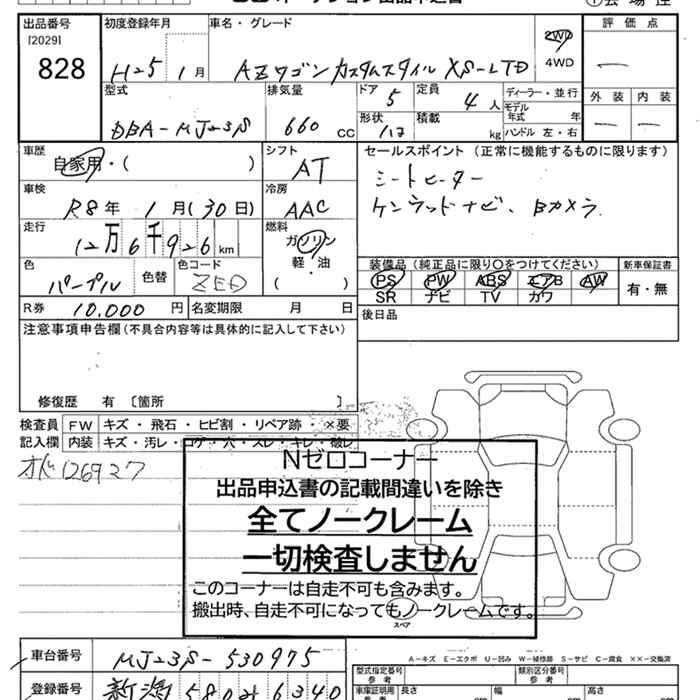 出品番号 初度登録年月 車名・グレード 評価点
[2029]
828 H25 1月 AZワゴン カスタムスタイル XS-LTD 2WD 4WD
型式 排気量 ドア 定員 ディーラー・並行 外装 内装
DBA-MJ23S 660 CC 5 4人 モデル年式 年
形状 積載 kg ハンドル 左・右
車歴 シフト セールスポイント(正常に機能するものに限ります)
自家用・( ) AT シートヒーター
車検 冷房 ケンウッドナビ、Bカメラ
R8年 1月(30日) AAC
走行 燃料
12万6千926km ガソリン
軽・油
( )
色 色替 色コード 装備品(純正品に限り○をつけてください) 新車保証書
パープル ZED PS PW ABS エアB AW 有・無
SR ナビ TV カワ
R券 10,000円 名変期限 月 日 後日品
注意事項申告欄(不具合内容等は具体的に記入して下さい)
修復歴 有〔箇所 〕
検査員 FW キズ・飛石・ヒビ割・リペア跡・×要
記入欄 内装 キズ・汚レ・コゲ・穴・スレ・キレ・破レ
126927
Nゼロコーナー
出品申込書の記載間違いを除き
全てノークレーム
一切検査しません
このコーナーは自走不可も含みます。
搬出時、自走不可になってもノークレームです。
スペア
A-キズ E-エクボ U-凹み W-補修跡 S-サビ C-腐食 ××-交換済
車台番号 MJ23S-530975
型式指定番号 類別区分番号
参考 参考
登録番号 新潟 580 6340
車庫証明用 長さ 幅 高さ
参考 cm cm cm